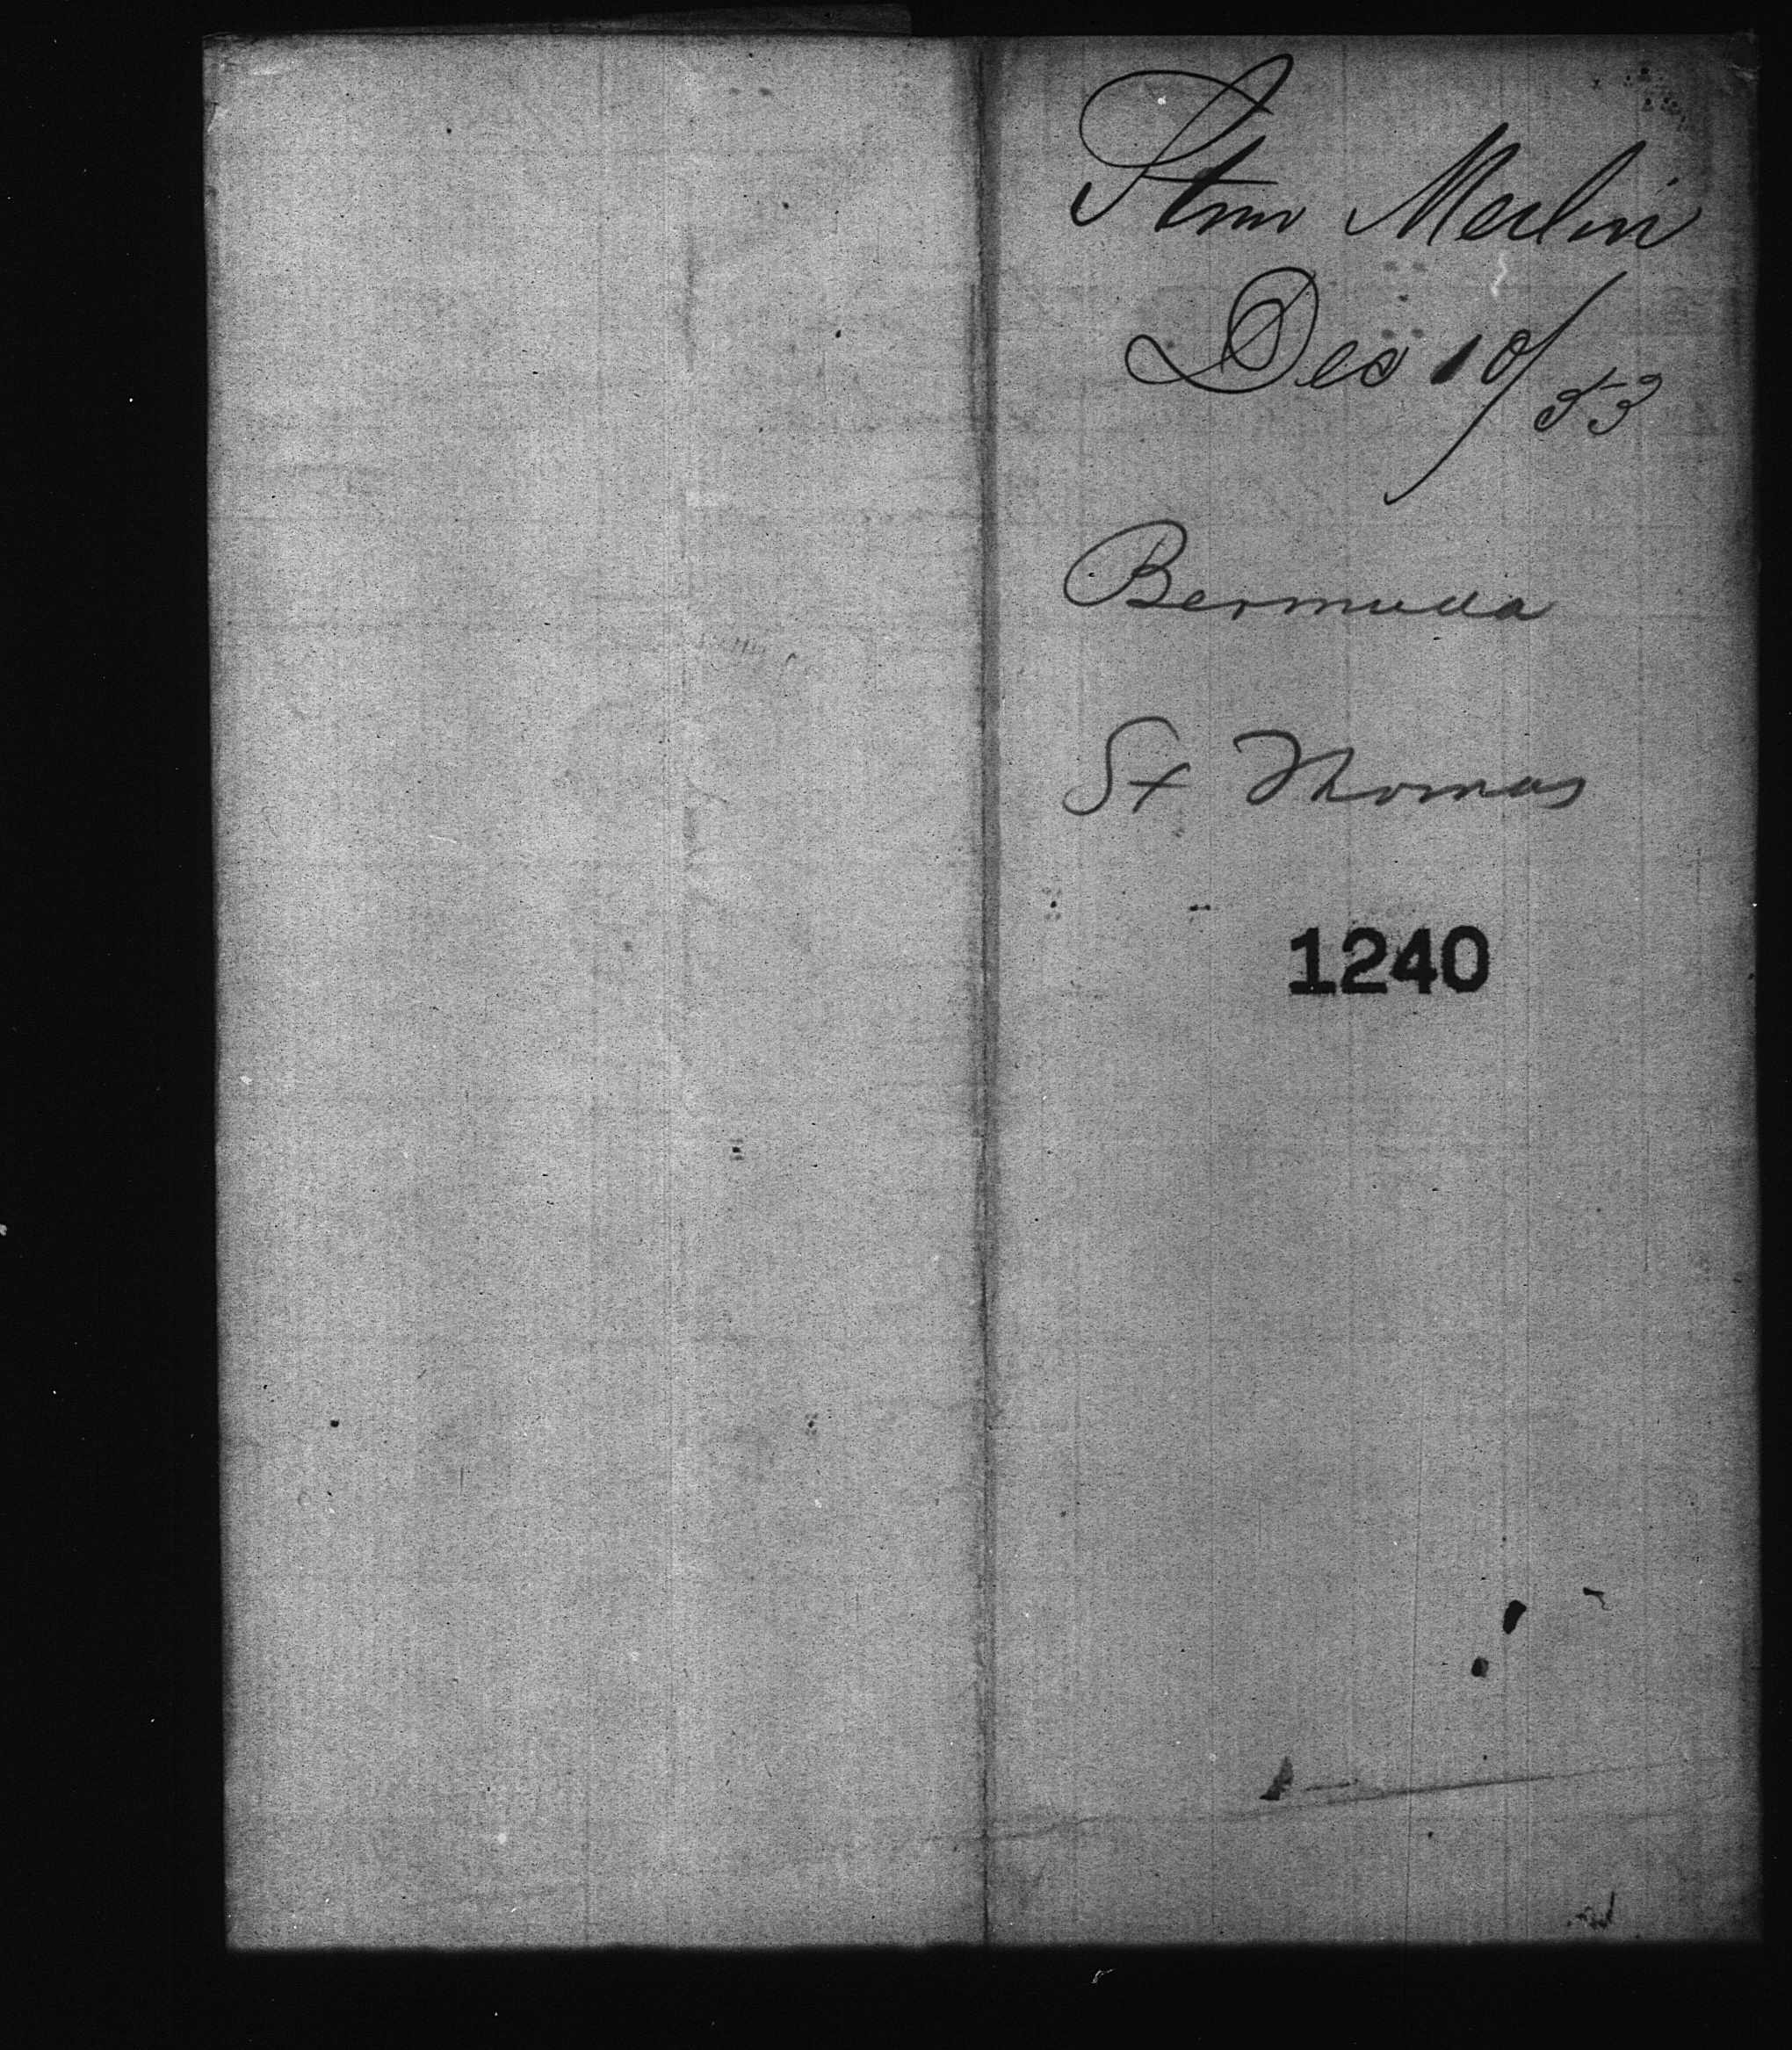 Stmr Merlin
Dec 10/53
Bermuda
St Thomas
1240